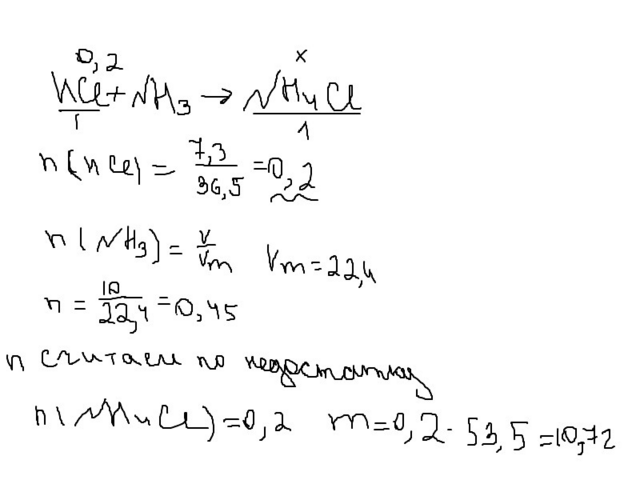 0,2 x
HCl + NH3 → NH4Cl
1 1
n(HCl) = 7,3/36,5 = 0,2
n(NH3) = V/Vm Vm = 22,4
n = 10/22,4 = 0,45
n считаем по недостатку
n(NH4Cl) = 0,2 m = 0,2 · 53,5 = 10,72